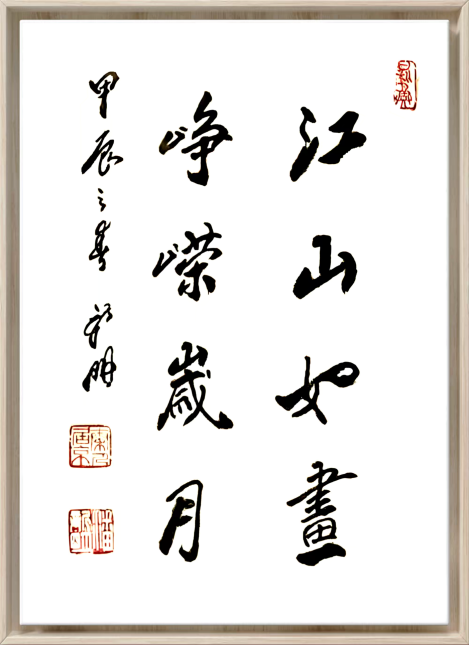 江山如畫
崢嶸歲月
甲辰之春
明